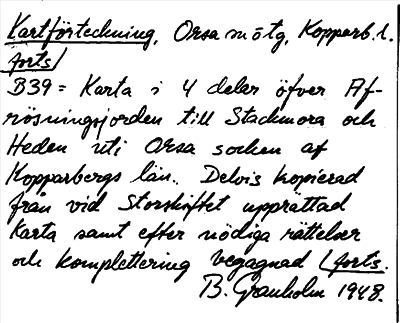 Kartförteckning, Orsa mötg, Kopparb. l.
forts/
B39 = Karta i 4 delar öfver Af-
rösningsjorden till Stackmora och
Heden uti Orsa socken af
Kopparbergs län. Delvis kopierad
från vid Storskiftet upprättad
Karta samt efter nödiga rättelser
och komplettering begagnad /forts.
B. Granholm 1948.